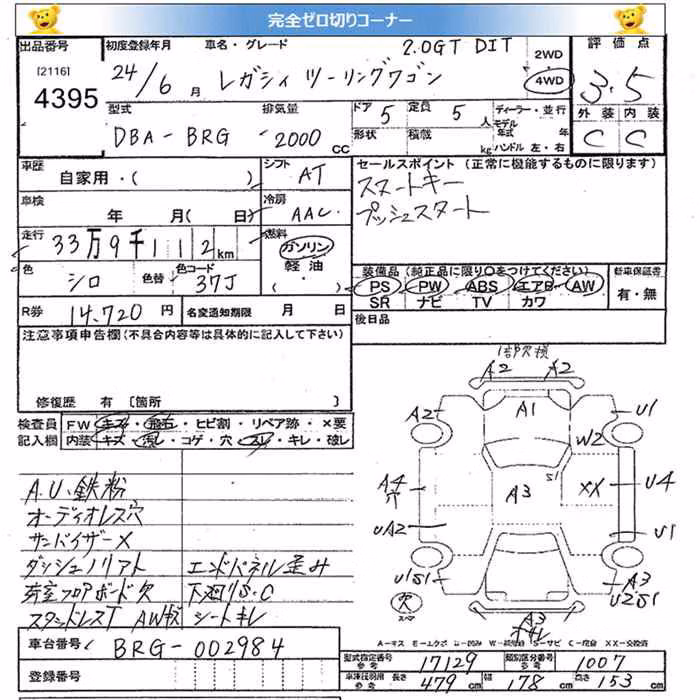 完全ゼロ切りコーナー
出品番号 初度登録年月 車名・グレード 2.0GT DIT 2WD 評価点
[2116] 4395 24/6月 レガシィ ツーリングワゴン 4WD 3.5
型式 排気量 ドア 5 定員 5人 ディーラー・並行 外装 内装
DBA-BRG 2000cc 形状 積載 kg モデル年式 年 ハンドル 左・右 C C
車歴 自家用・( ) シフト AT セールスポイント (正常に機能するものに限ります)
スマートキー
プッシュスタート
車検 年 月(日) 冷房 AAC
走行 33万9千112km 燃料 ガソリン 軽油 ( ・ )
色 シロ 色替 色コード 37J
装備品 (純正品に限り○をつけてください) 新車保証書
PS PW ABS エアB AW 有・無
SR ナビ TV カワ
R券 14,720円 名変通知期限 月 日 後日品
注意事項申告欄(不具合内容等は具体的に記入して下さい)
修復歴 有 [箇所
検査員記入欄 FW キズ・飛石・ヒビ割・リペア跡・×要
内装 キズ・汚れ・コゲ・穴・スレ・キレ・破レ
A.U.鉄粉
オーディオレス穴
サンバイザー×
ダッシュノリアト エンドパネル歪み
荷室フロアボード欠 下廻りS.C
スタッドレスT AWキズ シートキレ
1部欠損
A2 A2
A2 A1 U1
W2
A4 穴 A3 S1 XX U4
UA2 U1
U1S1 A3 U2S1
欠 スペア
A3
A-キズ U-凹み S-サビ C-腐食 XX-交換済
車台番号 BRG-002984
登録番号
型式指定番号 参考 17129 類別区分番号 参考 1007
長さ 479cm 幅 178cm 高さ 153cm